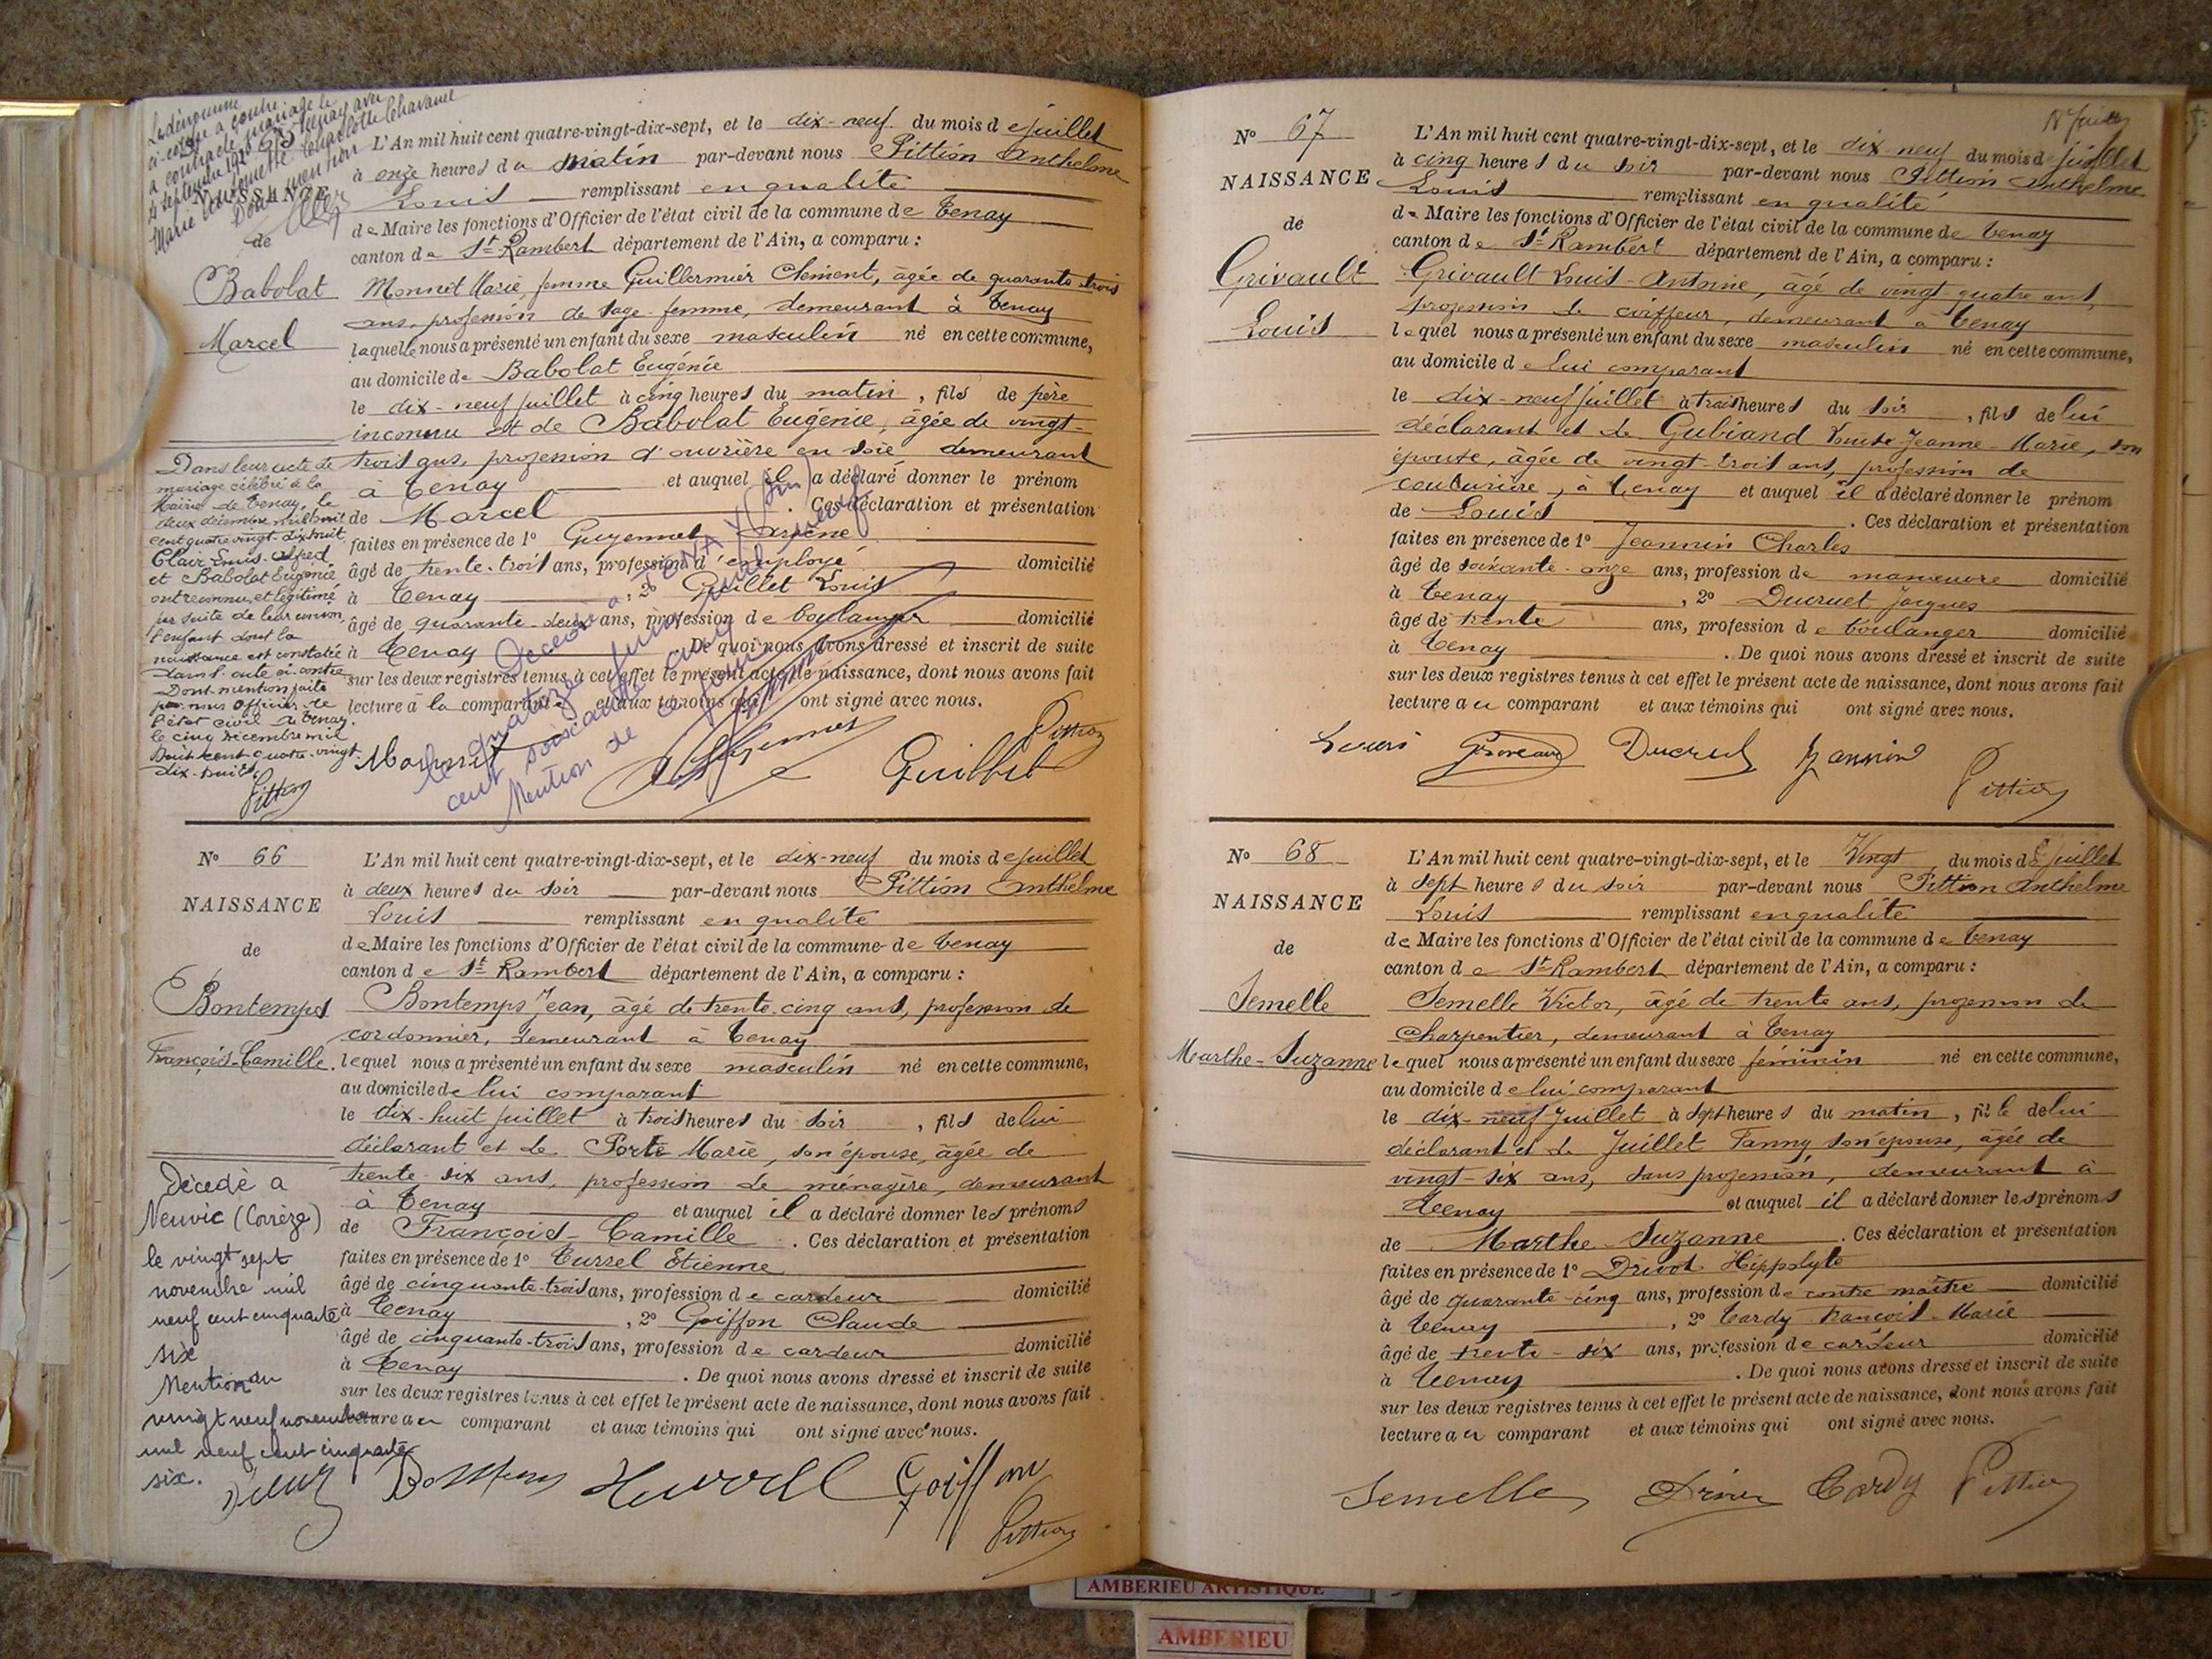 Le dénommé
ci-contre
a contracté mariage le
4 septembre 1920 à Tenay avec
Marie Antoinette Charlotte Chavanel
Dont mention
NAISSANCE
de
Babolat
Marcel
L'An mil huit cent quatre-vingt-dix-sept, et le dix-neuf du mois de Juillet
à onze heures du matin par-devant nous Pittion Anthelme
Louis remplissant en qualité
de Maire les fonctions d'Officier de l'état civil de la commune de Tenay
canton de St Rambert département de l'Ain, a comparu :
Monnet Marie, femme Guillermier Clément, agée de quarante-trois
ans, profession de sage-femme, demeurant à Tenay
laquelle nous a présenté un enfant du sexe masculin né en cette commune,
au domicile de Babolat Eugénie
le dix-neuf juillet à cinq heures du matin, fils de père
inconnu et de Babolat Eugénie, âgée de vingt-
trois ans, profession d'ouvrière en soie demeurant
à Tenay et auquel il a déclaré donner le prénom
de Marcel. Ces déclaration et présentation
faites en présence de 1° Guyennet Arsène
âgé de trente-trois ans, profession d'employé domicilié
à Tenay, 2° Guillet Louis
âgé de quarante-deux ans, profession de boulanger domicilié
à Tenay. De quoi nous avons dressé et inscrit de suite
sur les deux registres tenus à cet effet le présent acte de naissance, dont nous avons fait
lecture à la comparante et aux témoins qui ont signé avec nous.
Dans leur acte de
mariage célébré à la
Mairie de Tenay, le
deux décembre mil huit
cent quatre vingt-dix huit,
Clair Louis-Alfred
et Babolat Eugénie
ont reconnu et légitimé
par suite de leur union,
l'enfant dont la
naissance est constatée
dans l'acte ci-contre
Dont mention faite
par nous Officier de
l'état civil de Tenay.
le cinq décembre mil
huit cent quatre-vingt-
dix-huit.
Pittion
Décédé à TENAY (Ain)
le quatorze juin mil neuf
cent soixante cinq
Mention de ce jour
Monnet
Guillet
Pittion
N° 66
NAISSANCE
de
Bontemps
François-Camille.
L'An mil huit cent quatre-vingt-dix-sept, et le dix-neuf du mois de Juillet
à deux heures du soir par-devant nous Pittion Anthelme
Louis remplissant en qualité
de Maire les fonctions d'Officier de l'état civil de la commune de Tenay
canton de St Rambert département de l'Ain, a comparu :
Bontemps Jean, âgé de trente-cinq ans, profession de
cordonnier, demeurant à Tenay
lequel nous a présenté un enfant du sexe masculin né en cette commune,
au domicile de lui comparant
le dix-huit juillet à trois heures du soir, fils de lui
déclarant et de Porte Marie, son épouse, âgée de
trente-six ans, profession de ménagère, demeurant
à Tenay et auquel il a déclaré donner les prénoms
de François-Camille. Ces déclaration et présentation
faites en présence de 1° Tursel Etienne
âgé de cinquante-trois ans, profession de cardeur domicilié
à Tenay, 2° Goiffon Claude
âgé de cinquante-trois ans, profession de cardeur domicilié
à Tenay. De quoi nous avons dressé et inscrit de suite
sur les deux registres tenus à cet effet le présent acte de naissance, dont nous avons fait
lecture au comparant et aux témoins qui ont signé avec nous.
Décédé à
Neuvic (Corrèze)
le vingt sept
novembre mil
neuf cent cinquante
six
Mention du
vingt neuf novembre
mil neuf cent cinquante
six.
Goiffon
Pittion
N° 67
NAISSANCE
de
Grivault
Louis
L'An mil huit cent quatre-vingt-dix-sept, et le dix neuf du mois de juillet
à cinq heures du soir par-devant nous Pittion Anthelme
Louis remplissant en qualité
de Maire les fonctions d'Officier de l'état civil de la commune de Tenay
canton de St Rambert département de l'Ain, a comparu :
Grivault Louis-Antoine, âgé de vingt quatre ans,
profession de coiffeur, demeurant à Tenay
lequel nous a présenté un enfant du sexe masculin né en cette commune,
au domicile de lui comparant
le dix-neuf juillet à trois heures du soir, fils de lui
déclarant et de Gubiand Louise Jeanne-Marie, son
épouse, âgée de vingt-trois ans, profession de
couturière, à Tenay et auquel il a déclaré donner le prénom
de Louis. Ces déclaration et présentation
faites en présence de 1° Jeannin Charles
âgé de soixante-onze ans, profession de manœuvre domicilié
à Tenay, 2° Ducruet Jacques
âgé de trente ans, profession de boulanger domicilié
à Tenay. De quoi nous avons dressé et inscrit de suite
sur les deux registres tenus à cet effet le présent acte de naissance, dont nous avons fait
lecture au comparant et aux témoins qui ont signé avec nous.
Ducruet Jeannin
Pittion
N° 68
NAISSANCE
de
Semelle
Marthe-Suzanne
L'An mil huit cent quatre-vingt-dix-sept, et le Vingt du mois de Juillet
à sept heures du soir par-devant nous Pittion Anthelme
Louis remplissant en qualité
de Maire les fonctions d'Officier de l'état civil de la commune de Tenay
canton de St Rambert département de l'Ain, a comparu :
Semelle Victor, âgé de trente ans, profession de
Charpentier, demeurant à Tenay
lequel nous a présenté un enfant du sexe féminin né en cette commune,
au domicile de lui comparant
le dix-neuf Juillet à sept heures du matin, fille de lui
déclarant et de Juillet Fanny son épouse, âgée de
vingt-six ans, sans profession, demeurant à
Tenay et auquel il a déclaré donner les prénoms
de Marthe-Suzanne. Ces déclaration et présentation
faites en présence de 1° Drivot Hippolyte
âgé de quarante-cinq ans, profession de contre maître domicilié
à Tenay, 2° Tardy François-Marie
âgé de trente-six ans, profession de cardeur domicilié
à Tenay. De quoi nous avons dressé et inscrit de suite
sur les deux registres tenus à cet effet le présent acte de naissance, dont nous avons fait
lecture au comparant et aux témoins qui ont signé avec nous.
Semelle Tardy Pittion
AMBERIEU ARTISTIQUE
AMBERIEU